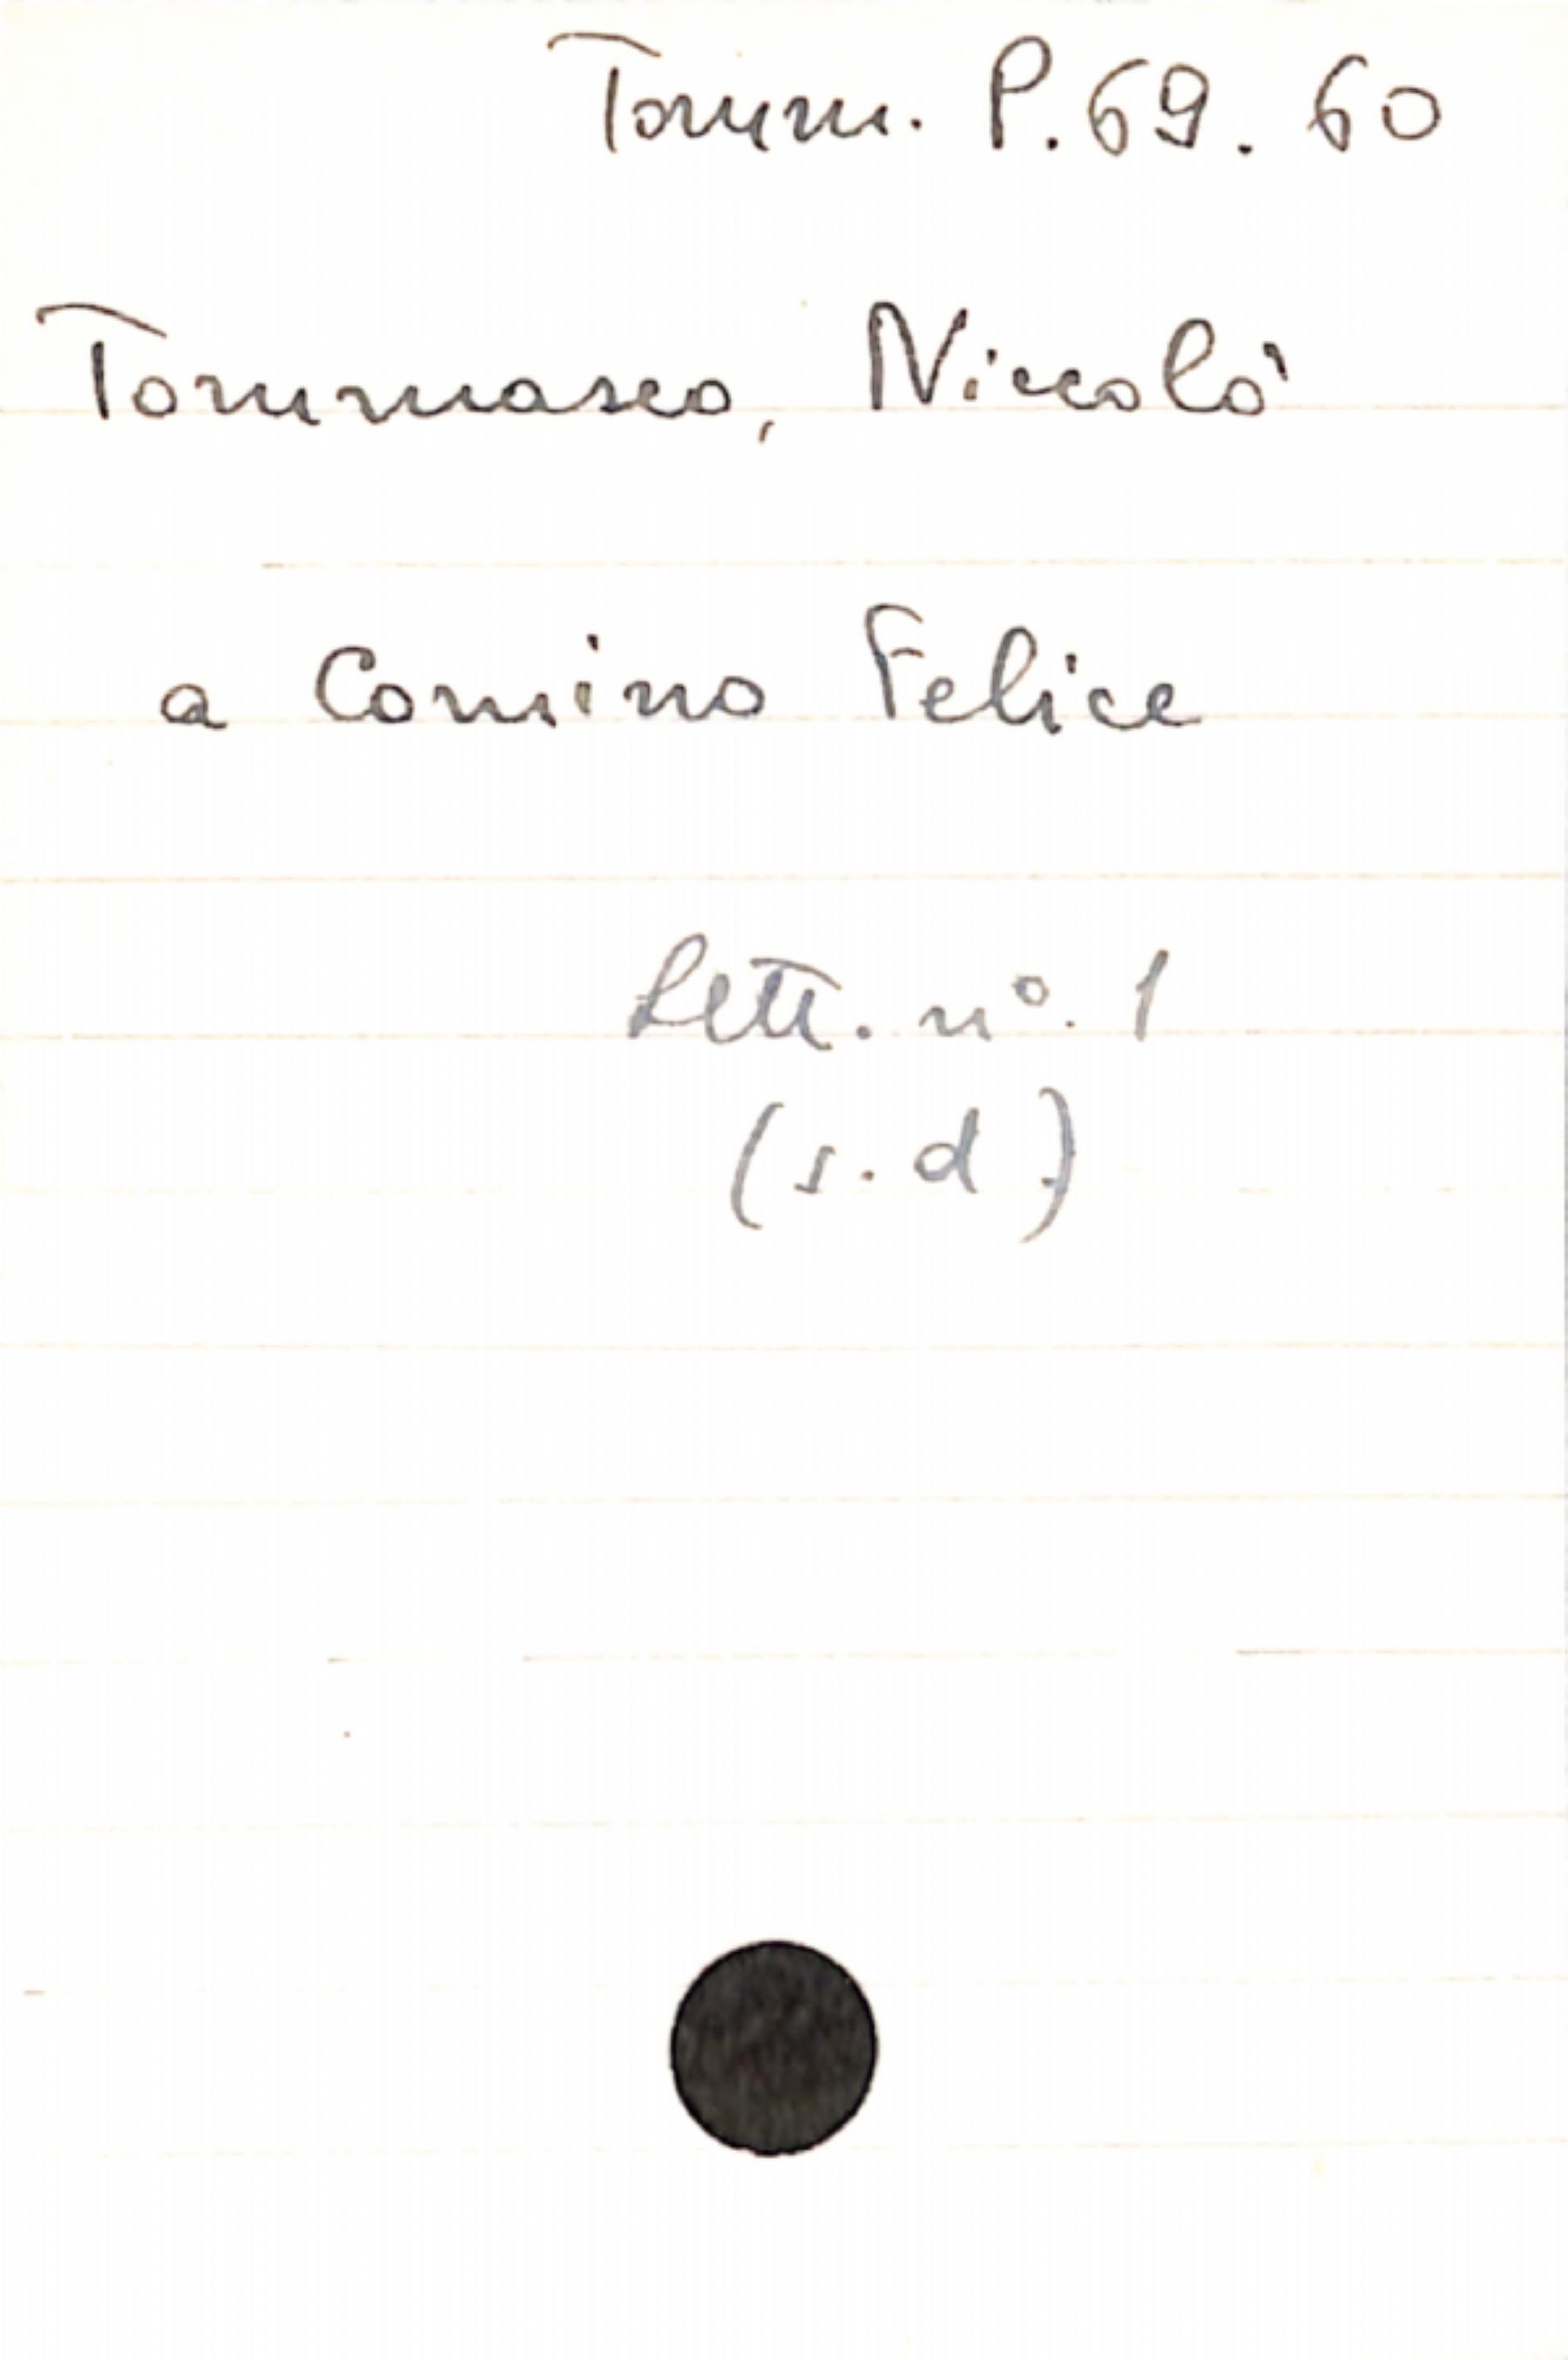 Tomm. P. 69. 60
Tommaseo, Niccolò
a Comino Felice
Lett. n°. 1
(s. d.)